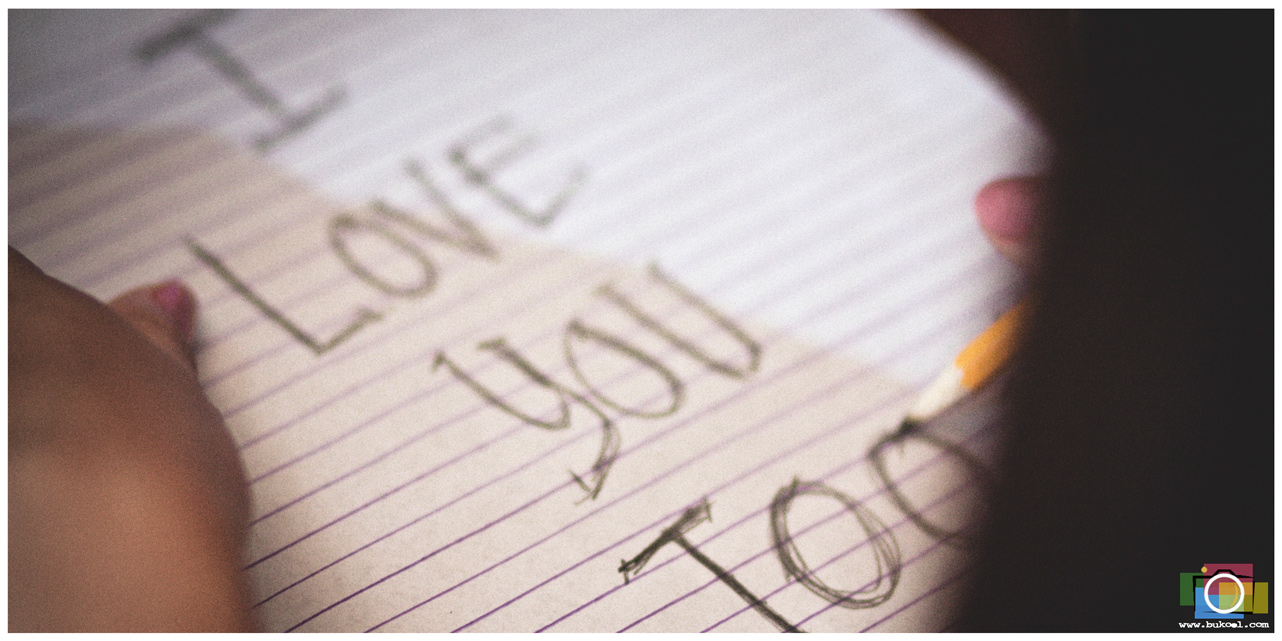 I
LOVE
yOU
TOO
www.bukoel.com